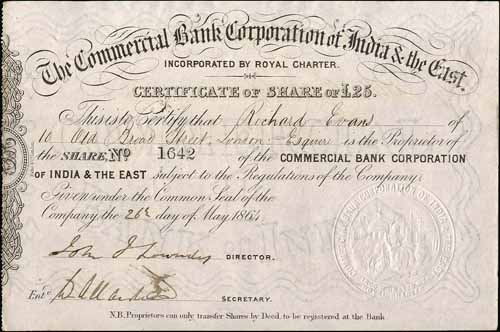 The Commercial Bank Corporation of India & the East.
INCORPORATED BY ROYAL CHARTER.
CERTIFICATE OF SHARE OF £25.
This is to Certify that Richard Evans of
10 Old Broad Street, London Esquire is the Proprietor of
the SHARE, No 1642 of the COMMERCIAL BANK CORPORATION
OF INDIA & THE EAST subject to the Regulations of the Company.
Given under the Common Seal of the
Company the 26th day of May 1864
John J Lowndes DIRECTOR.
Entd.
SECRETARY.
N.B. Proprietors can only transfer Shares by Deed, to be registered at the Bank